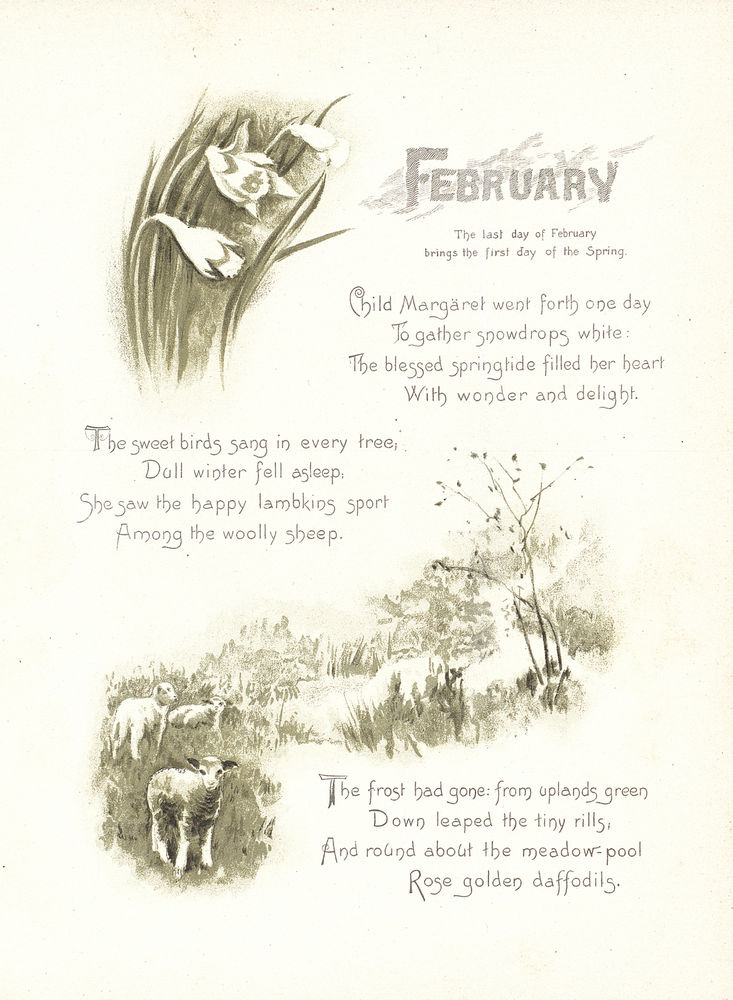 FEBRUARY
The last day of February
brings the first day of the Spring.
Child Margäret went forth one day
To gather snowdrops white:
The blessed springtide filled her heart
With wonder and delight.
The sweet birds sang in every tree;
Dull winter fell asleep;
She saw the happy lambkins sport
Among the woolly sheep.
The frost had gone: from uplands green
Down leaped the tiny rills;
And round about the meadow-pool
Rose golden daffodils.